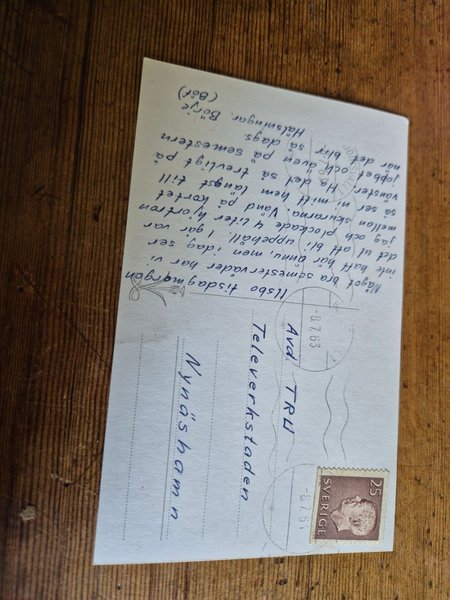 Ilsbo tisdagmorgon
Något bra semesterväder har vi
inte haft här ännu, men idag ser
det ut att bli uppehåll. I går var
jag och plockade 4 liter hjortron
mellan skurarna. Vänd på kortet
så ni ser mitt hem längst till
vänster. Ha det så trevligt på
jobbet och även på semestern
när det blir så dags.
Hälsningar. Börje
(Böf)
-8.7.63
-8.7.63
25
SVERIGE
Avd. TRH
Televerkstaden
Nynäshamn